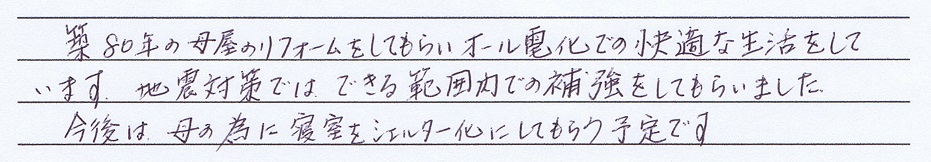 築80年の母屋のリフォームをしてもらいオール電化での快適な生活をして
います。地震対策では、できる範囲内での補強をしてもらいました。
今後は、母の為に寝室をシェルター化にしてもらう予定です